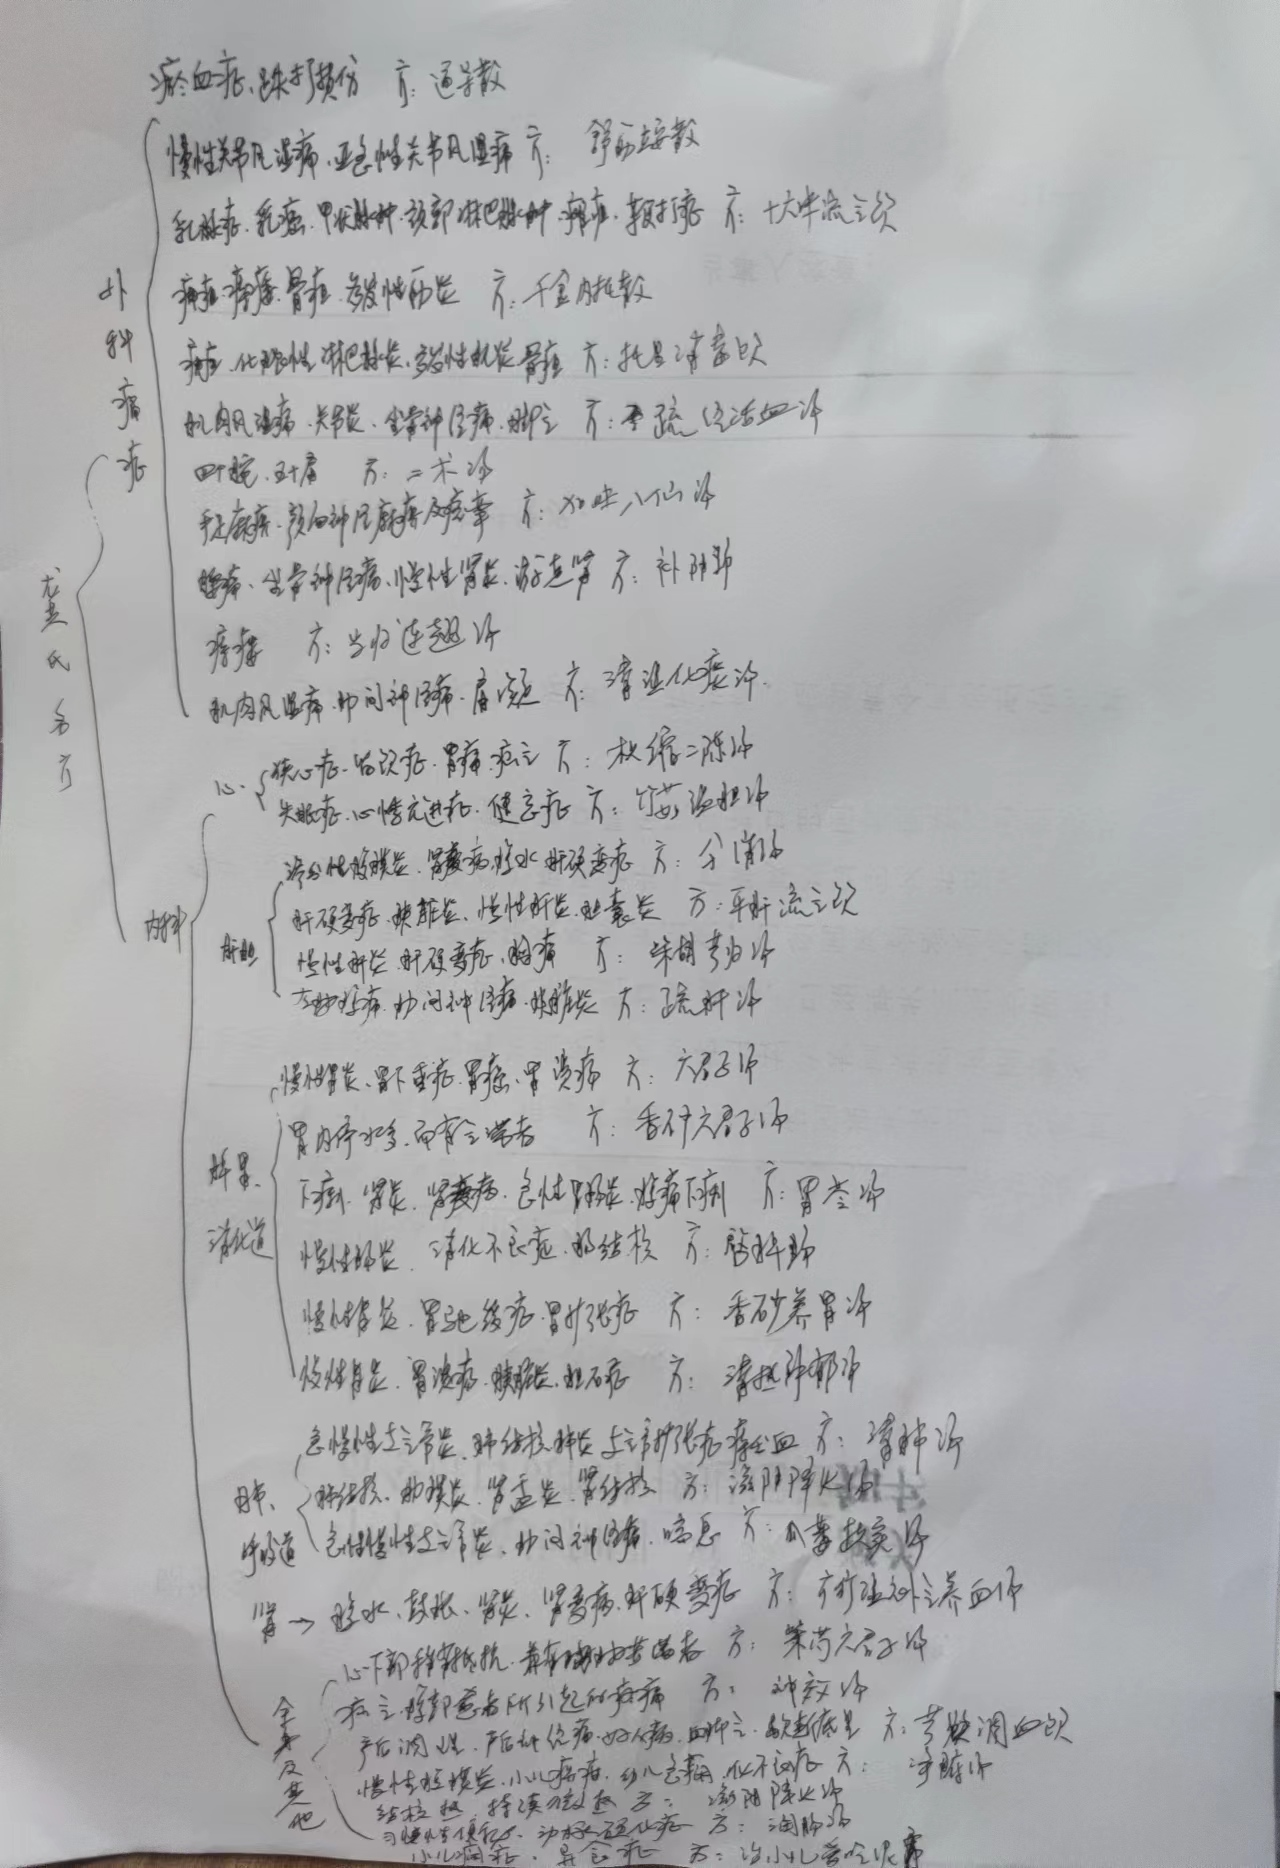 瘀血症、跌打损伤 方:通导散
慢性关节风湿痛、亚急性关节风湿痛 方: 舒筋立安散
乳腺症、乳癌、甲状腺肿、颈部淋巴腺肿、痈疽 方:十六味流气饮
外科病症
痈疽、瘰疬、骨疽 方:千金内托散
痈疽、化脓性淋巴腺炎 骨疽 方:托里消毒饮
肌肉风湿痛、关节炎、坐骨神经痛、脚气 方:疏经活血汤
四十腕、五十肩 方:二术汤
手足麻痹、颜面神经麻痹及痉挛 方:加味八仙汤
腰痛、坐骨神经痛、慢性肾炎、游走肾 方:补阴汤
瘰疬 方:当归连翘汤
肌肉风湿痛、肋间神经痛、肩凝 方:清湿化痰汤
龚氏名方
心
狭心症、留饮症、胃痛、疝气 方:枳缩二陈汤
失眠症、心悸亢进症、健忘症 方:竹茹温胆汤
内科
肝胆
渗出性腹膜炎、胃、腹水、肝硬变症 方:分消汤
肝硬变症、胰脏炎、慢性肝炎、胆囊炎 方:平肝流气饮
慢性肝炎、肝硬变症、胸痛 方:柴胡芎归汤
左胁 痛、肋间神经痛、胰脏炎 方:疏肝汤
脾胃、消化道
慢性胃炎、胃下垂症、胃癌、胃溃疡 方:六君子汤
胃内停水多,而有气滞者 方:香砂六君子汤
下痢、肾炎、肾变病、急性肠炎、腹痛下痢 方:胃苓汤
慢性肠炎、消化不良症、肠结核 方:启脾汤
慢性胃炎、胃弛缓症、胃扩张症 方:香砂养胃汤
慢性胃炎、胃溃疡、胰脏炎、胆石症 方:清热解郁汤
肺、呼吸道
急慢性支气管炎、肺结核、肺炎、支气管扩张症、痰出血 方:清肺汤
肺结核、肋膜炎、肾盂炎、肾结核 方:滋阴降火汤
急性慢性支气管炎、肋间神经痛、喘息 方:瓜蒌枳实汤
肾→腹水、鼓胀、肾炎、肾变病、肝硬变症 方:补气养血汤
全身及其他
心下部 抵抗 者 方:柴芍六君子汤
疝气、 所引起的疼痛 方:神效汤
产后调理、产后 妇人病、血脚气 方:芎归调血饮
慢性腹膜炎、小儿 不良症 方:净腑汤
结核热、持续微热 方:滋阴降火汤
习惯性便秘、动脉硬化症 方:润肠汤
小儿疳症、异食症 方:治小儿